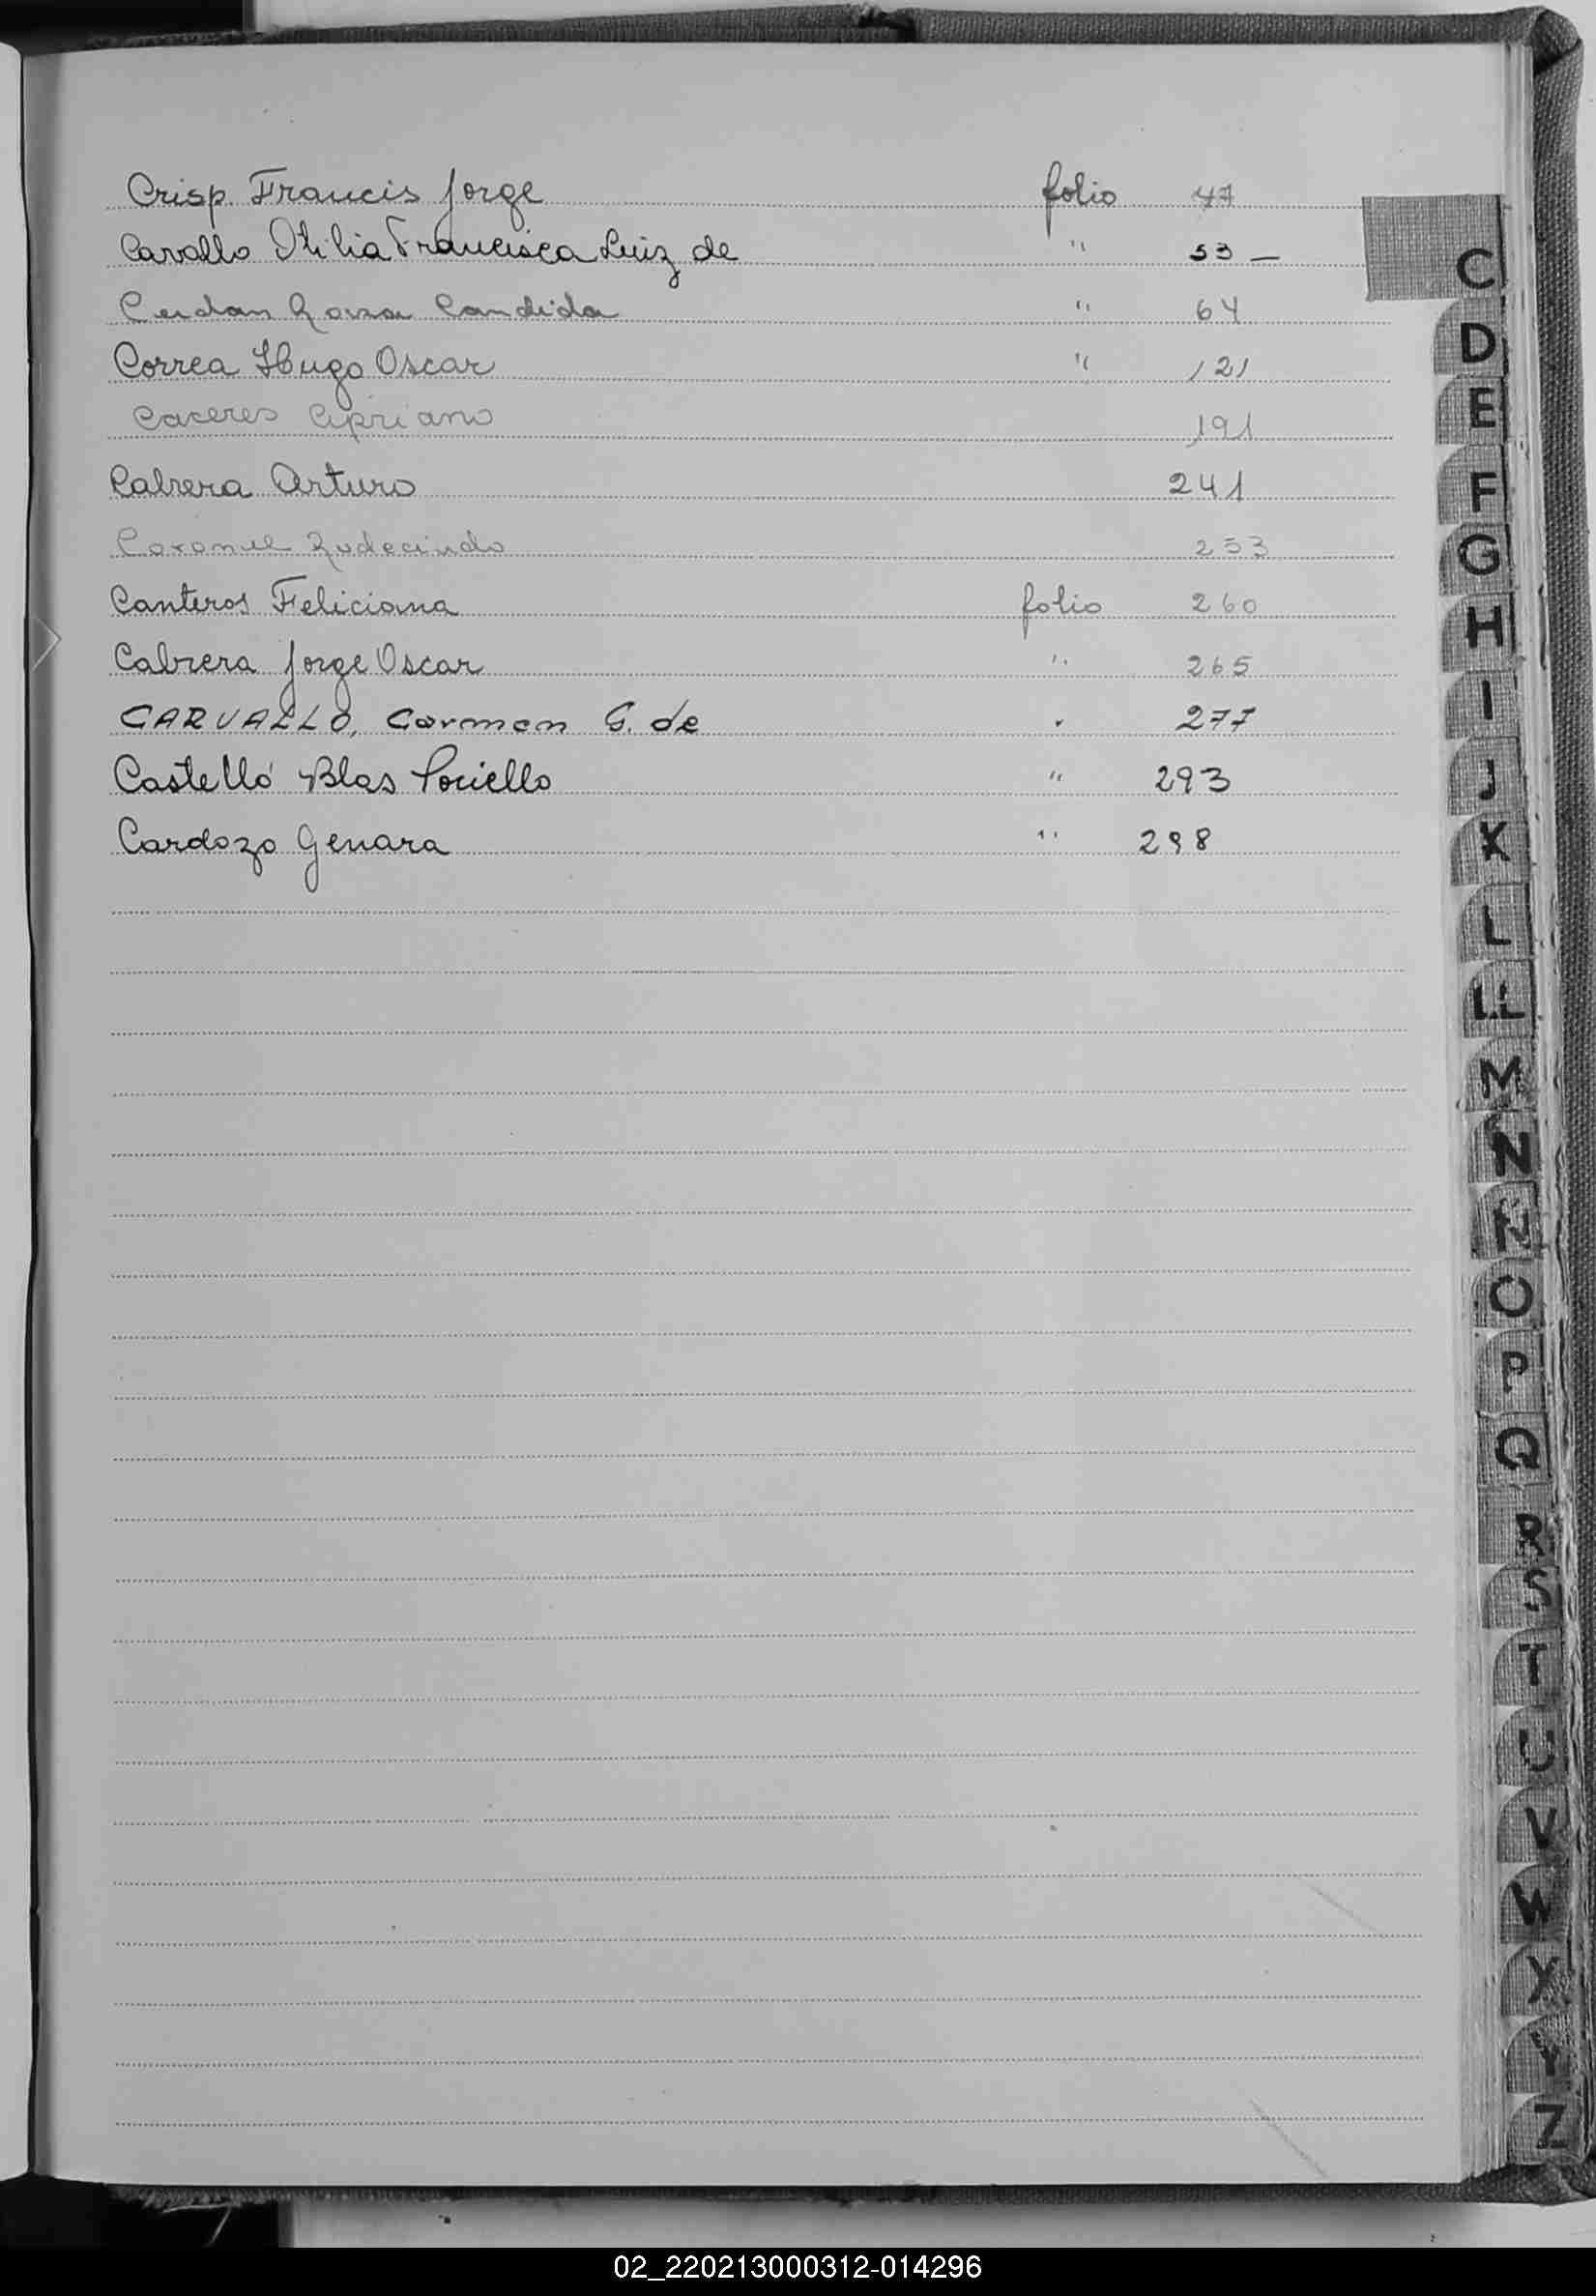 Crisp Francis Jorge folio 47
Cavallo Otilia Francisca Luiz de " 53 —
Cerdan Rosa Candida " 64
Correa Hugo Oscar " 121
Caceres Cipriano 191
Cabrera Arturo 241
Coronel Rudecindo 253
Canteros Feliciana folio 260
Cabrera Jorge Oscar " 265
CARVALLO, Carmen G. de " 277
Castelló Blas 293
Cardozo Genara " 298
C
D
E
F
G
H
I
J
K
L
LL
M
N
Ñ
O
P
Q
R
S
T
U
V
W
X
Y
Z
02_220213000312-014296